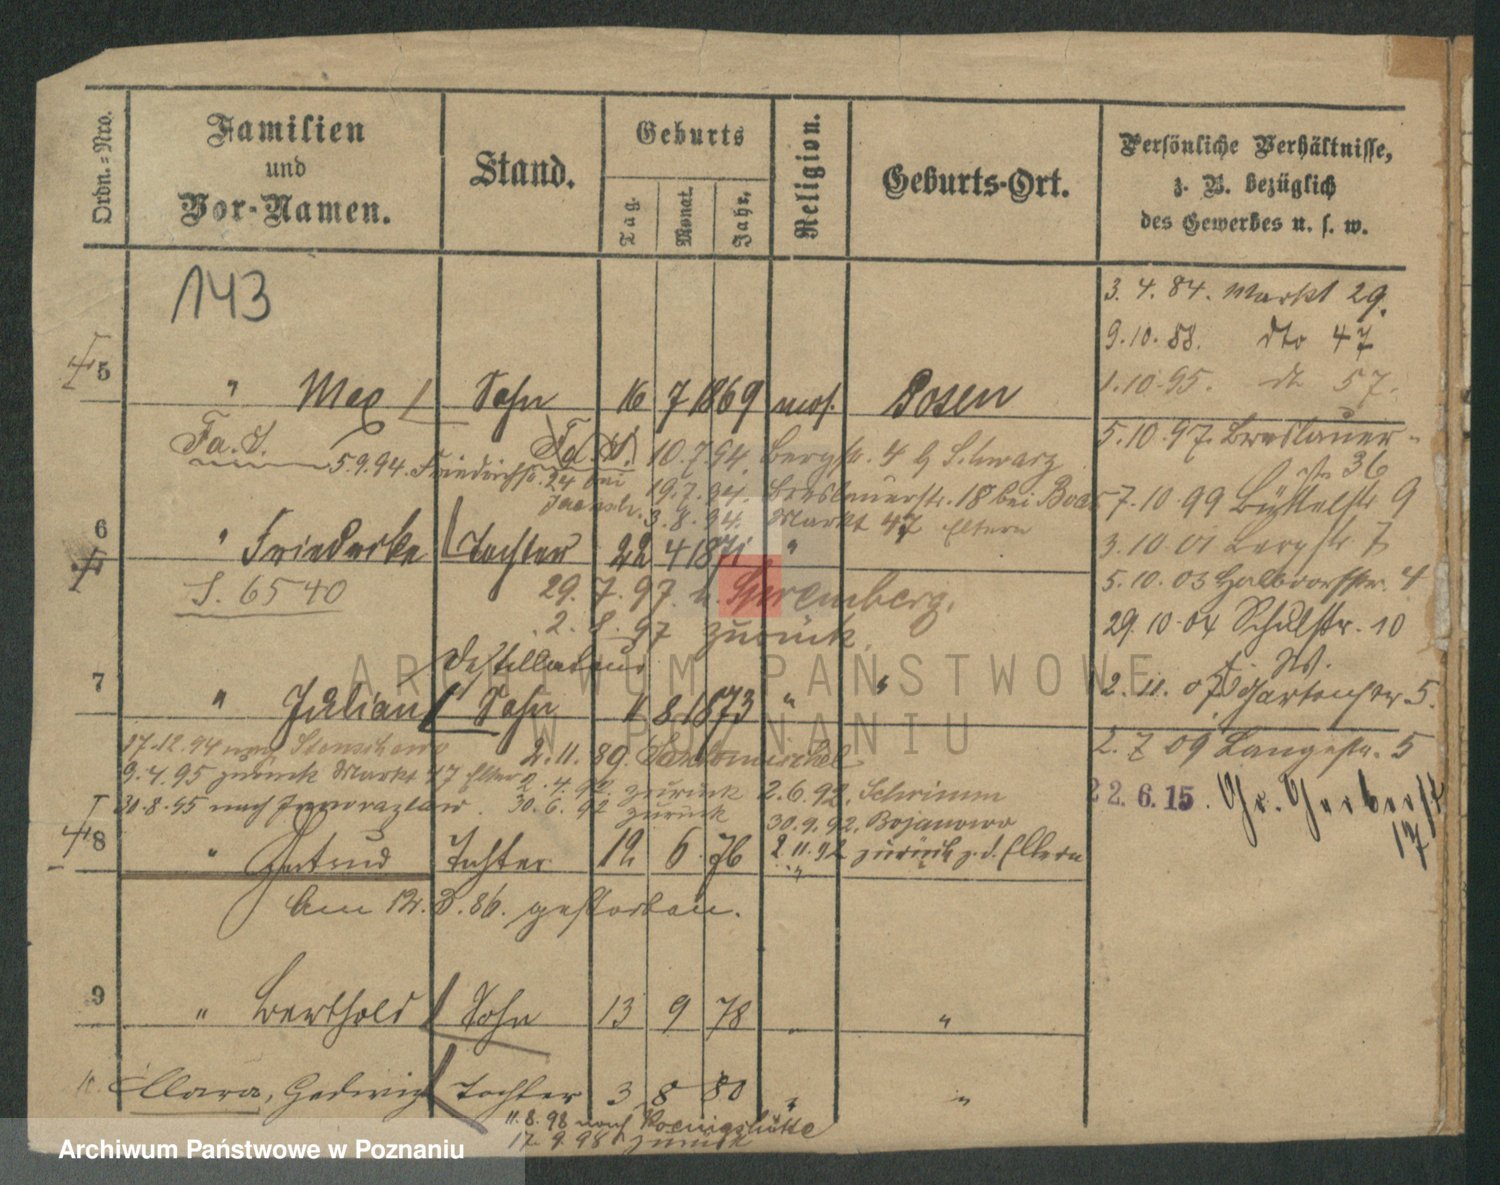 Ordn.=Nro.
Familien
und
Vor-Namen.
Stand.
Geburts
Tag.
Monat.
Jahr.
Religion.
Geburts-Ort.
Persönliche Verhältnisse,
z. B. bezüglich
des Gewerbes u. s. w.
143
3. 4. 84. Markt 29.
9. 10. 88. dto 47
1. 10. 95. dto 57.
5 " Max Sohn 16 7 1869 mos. Posen
5. 10. 97. Breslauer-
str. 36
Fa. S. 10. 7. 94. Bergstr. 4 b Schwarz
5. 9. 94. Friedrichstr. 24 bei
19. 7. 94. Breslauerstr. 18 bei
7. 10. 99 Büttelstr 9
3. 8. 94. Markt 47 Eltern
6 " Friederike Tochter 22 4 1871 "
3. 10. 01 Bergstr 7
S. 6540
29. 7. 97. n. Spremberg.
5. 10. 03 Halbdorfstr. 4
2. 8. 97 zurück.
29. 10. 04 Schulstr. 10
Destillateur
7 " Julian Sohn 11 8 1873 " "
2. 11. 05 Gartenstr. 5.
17. 12. 94 nach
2. 11. 89.
2. 7. 09 Langestr. 5
9. 4. 95 zurück Markt 47 Eltern
2. 4. 92. zurück
2. 6. 92. Schrimm
30. 8. 95 nach Inowrazlaw.
30. 6. 92 zurück
30. 9. 92. Bojanowo
22. 6. 15. Gr. Gerberstr
17
8 " Gertrud Tochter 12 6 76 "
2. 11. 92 zurück z. d. Eltern
Am 12. 3. 86. gestorben.
9 " Berthold Sohn 13 9 78 " "
10. Clara, Hedwig Tochter 3 8 80 " "
11. 8. 98 nach Koenigshütte
12. 9. 98 zurück
ARCHIWUM PAŃSTWOWE
W POZNANIU
Archiwum Państwowe w Poznaniu